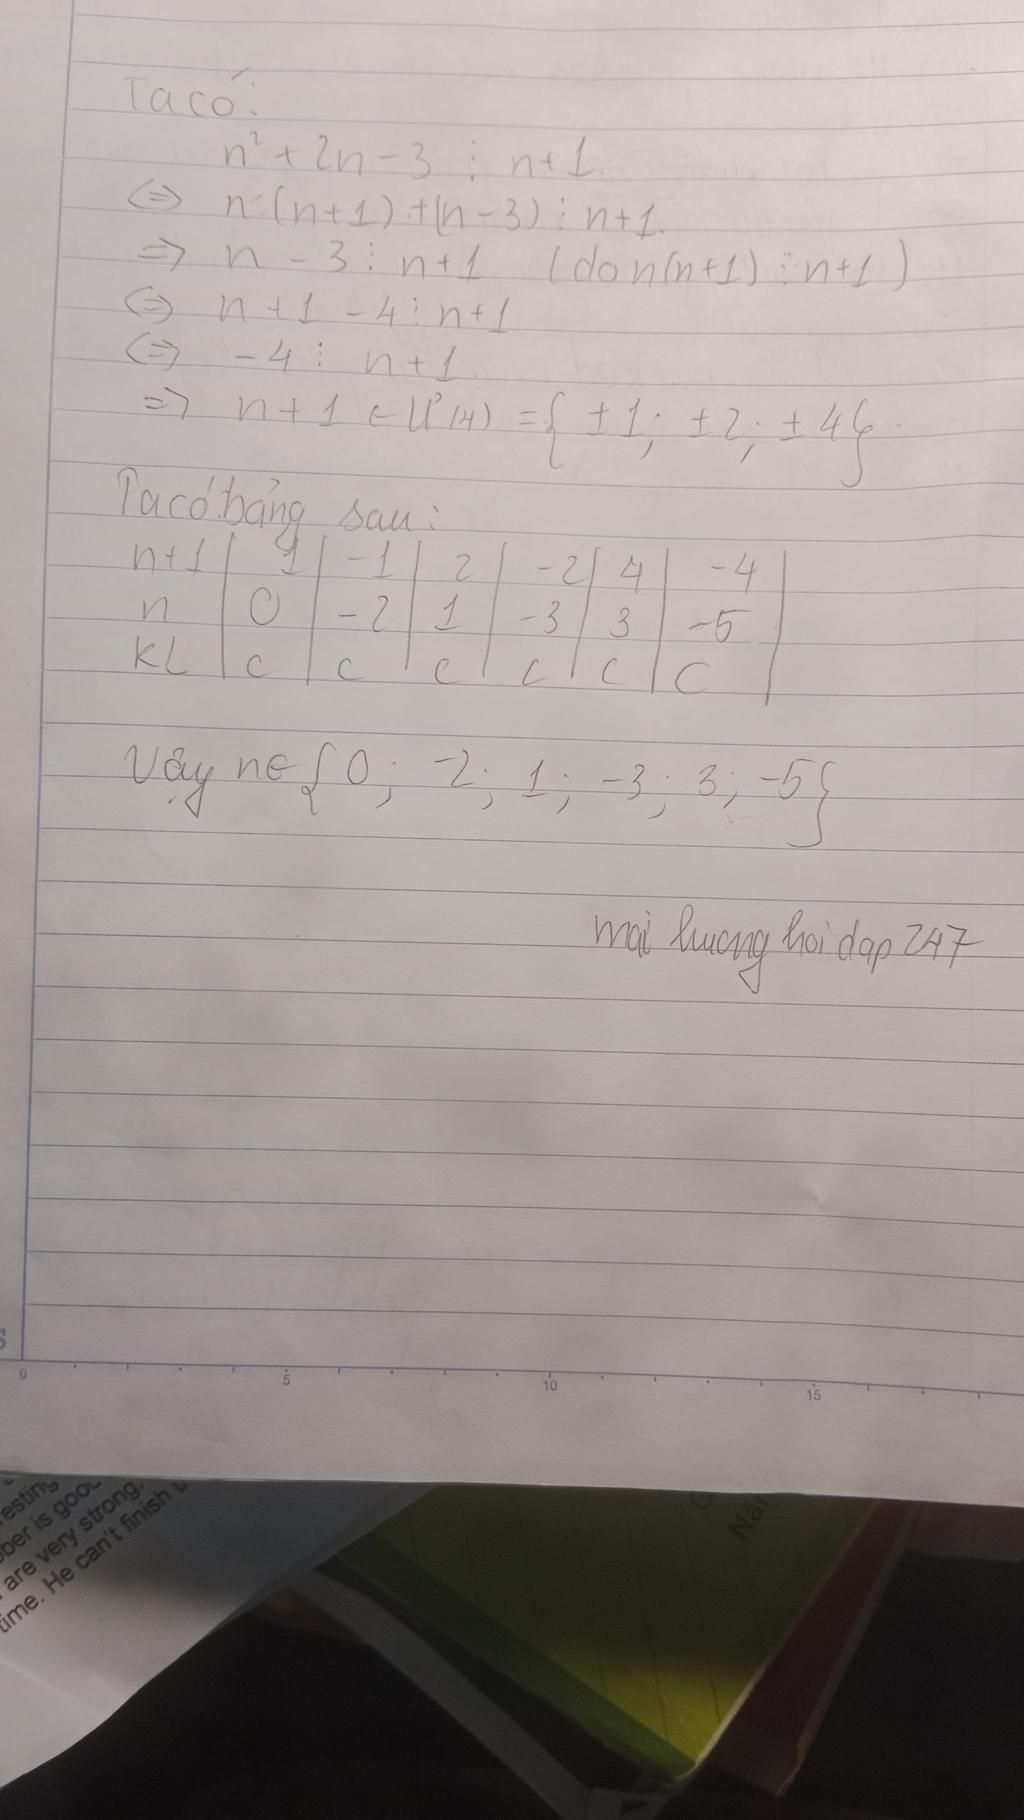 Ta có:
n² + 2n - 3 ⋮ n+1.
⇔ n.(n+1)+(n-3) ⋮ n+1.
=> n - 3 ⋮ n+1 (do n(n+1) ⋮ n+1)
⇔ n+1 - 4 ⋮ n+1
⇔ -4 ⋮ n+1.
=> n+1 ∈ Ư(4) = { ±1; ±2; ±4}.
Ta có bảng sau:
n+1 | 1 | -1 | 2 | -2 | 4 | -4 |
n | 0 | -2 | 1 | -3 | 3 | -5
KL | C | C | C | C | C | C |
Vậy n∈ {0; -2; 1; -3; 3; -5}
mai huong hoi dap 247
S
0 5 10 15
resting
ber is good
are very strong.
time. He can't finish
Năm